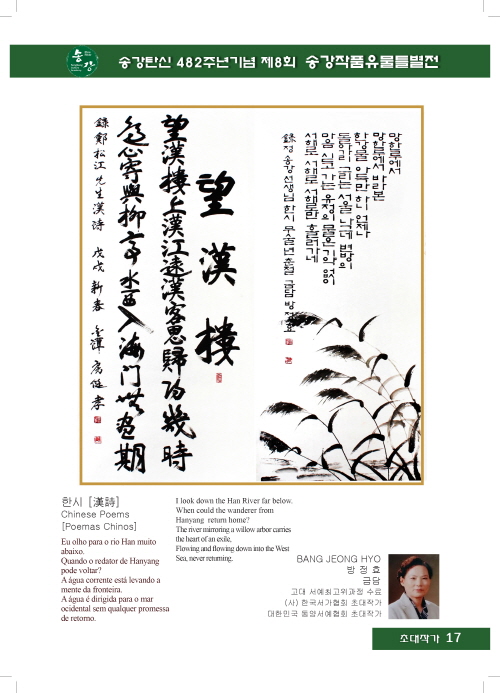 송강
송강탄신 482주년기념 제8회 송강작품유물특별전
望漢樓
望漢樓上漢江遠漢客思歸幾時
邊心寄與柳亭水西入海門無盡期
錄鄭松江先生漢詩 戊戌新春 金潭
망한루에서
망한루에서 바라본
한강물 아득만 언제나
돌아갈 그리는 서울 나그네 변방의
맘 싣고 가는 유정의 물은 기약 없이
서해로 서해로 서해로만 흘러가네
錄정송강선생님 한시 무술년 춘절 금담 방정효
한시 [漢詩]
Chinese Poems
[Poemas Chinos]
Eu olho para o rio Han muito
abaixo.
Quando o redator de Hanyang
pode voltar?
A água corrente está levando a
mente da fronteira.
A água é dirigida para o mar
ocidental sem qualquer promessa
de retorno.
I look down the Han River far below.
When could the wanderer from
Hanyang return home?
The river mirroring a willow arbor carries
the heart of an exile,
Flowing and flowing down into the West
Sea, never returning.
BANG JEONG HYO
방 정 효
금담
고대 서예최고위과정 수료
(사) 한국서가협회 초대작가
대한민국 동양서예협회 초대작가
초대작가 17